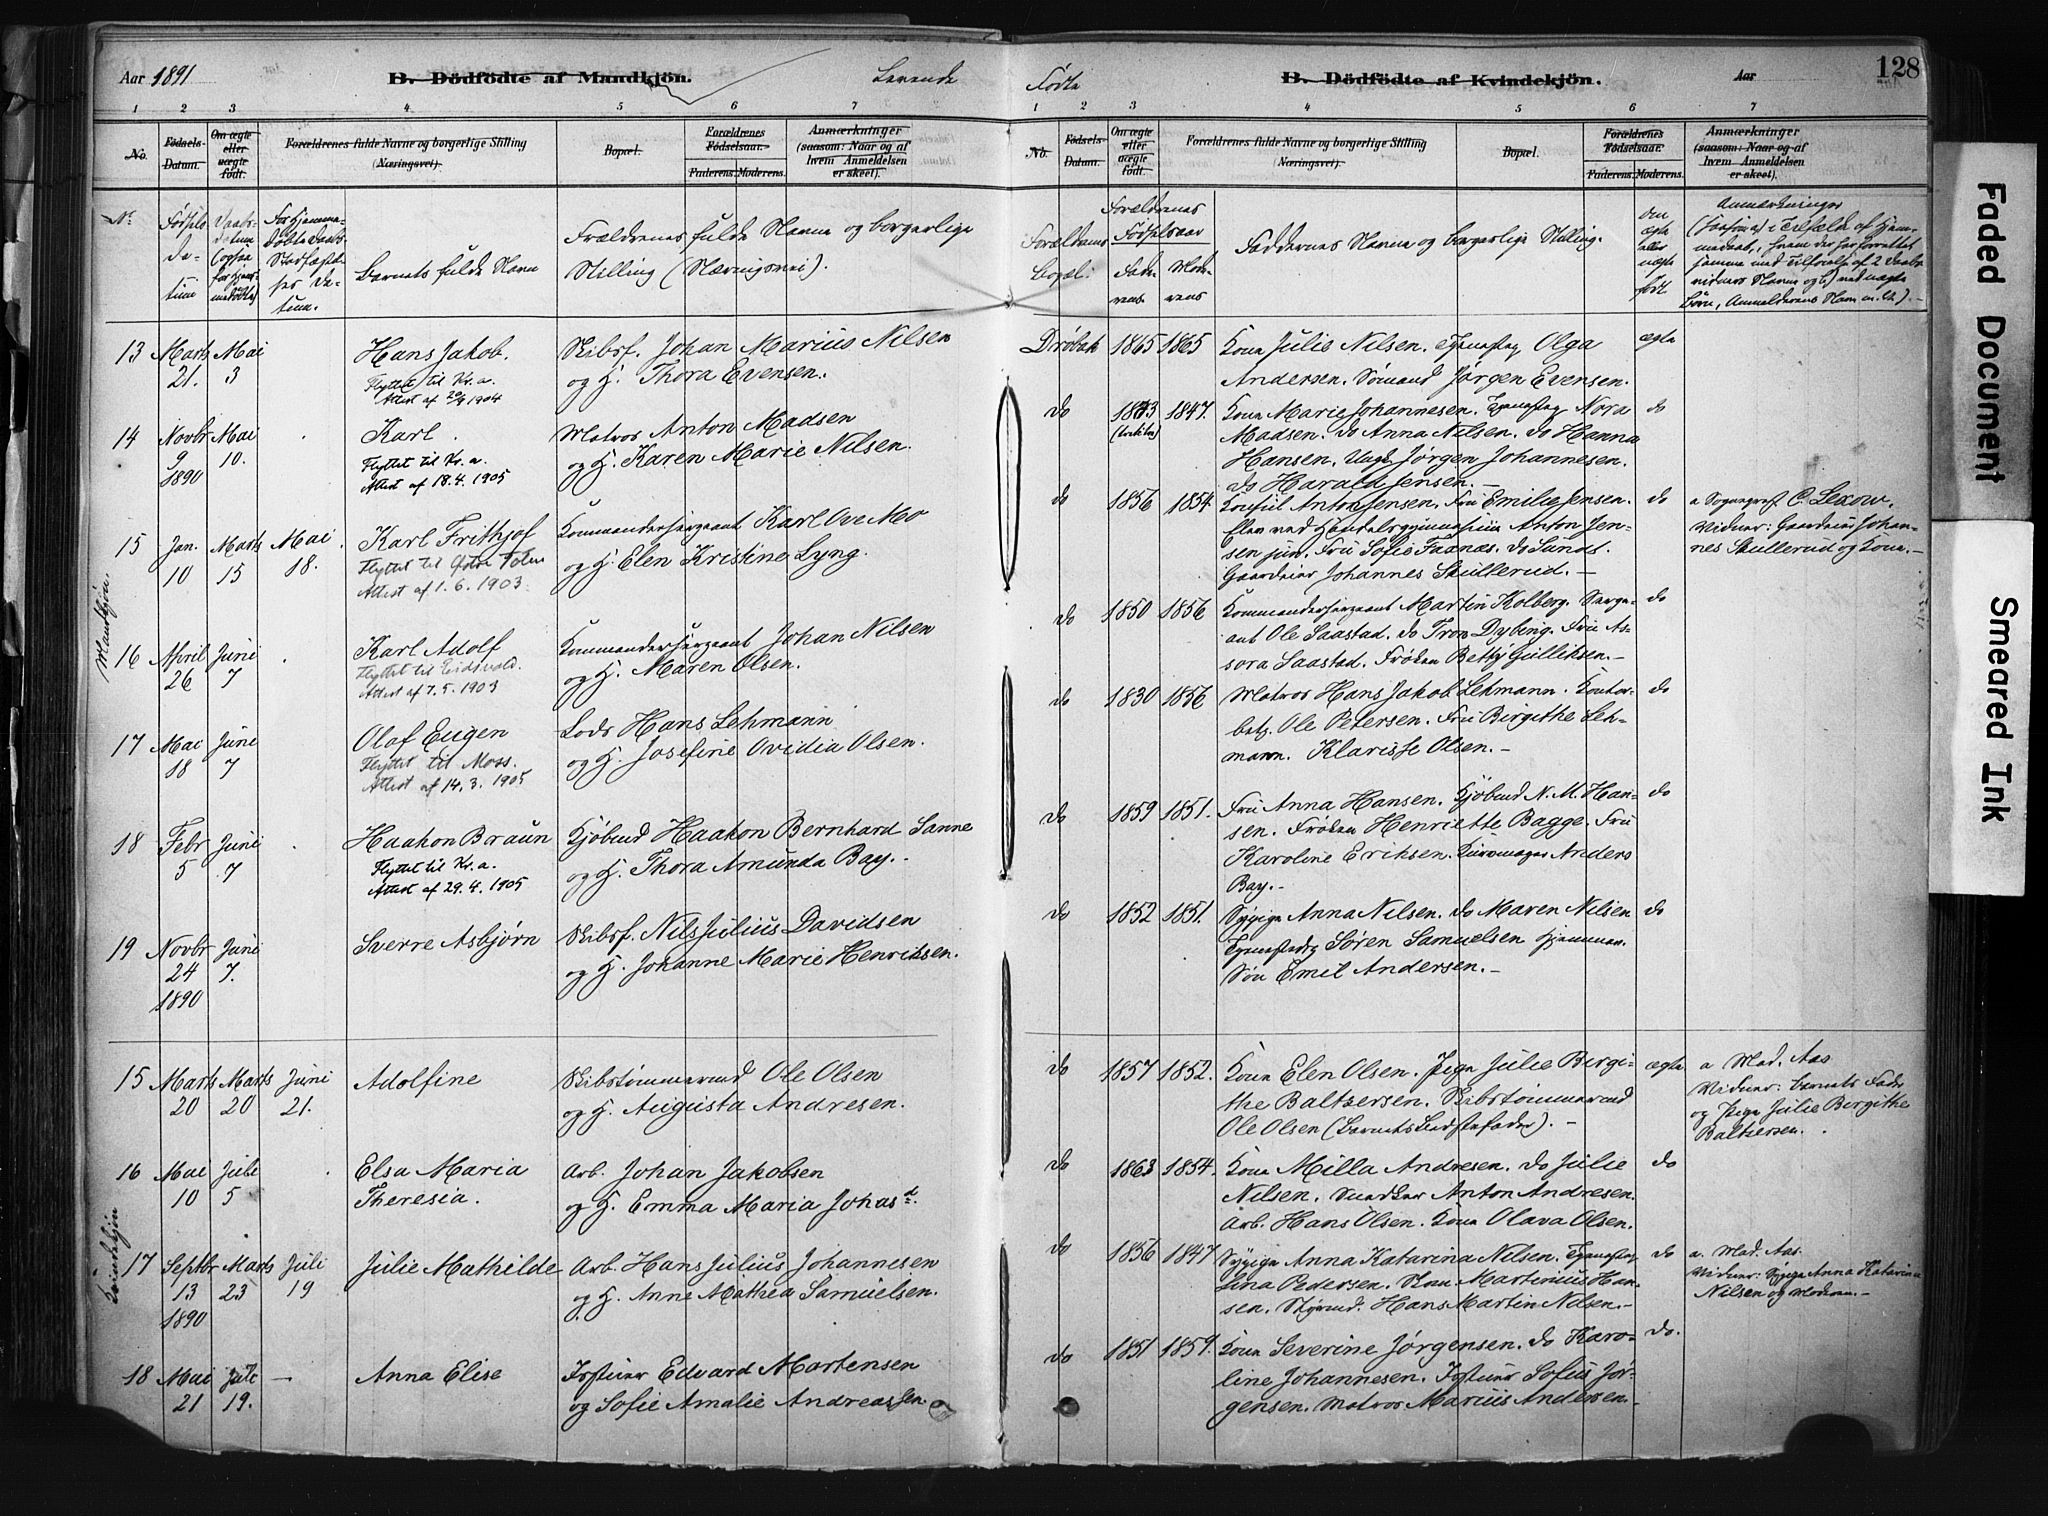 Aar 1891
B. Dödfödte af Mandkjön.
Levende
1 2 3 4 5 6 7
No.
Födsels-Datum.
Om ægte eller uægte födt.
Forældrenes fulde Navne og borgerlige Stilling (Næringsvei).
Bopæl.
Forældrenes Födselsaar.
Faderens. Moderens.
Anmærkninger (saasom: Naar og af hvem Anmeldelsen er skeet).
Nr.
Fødselsdatum
Daabsdatum (ogsaa for hjemmedøbte)
For hjemmedøbte Daabs Stadfæstelses Datum.
Barnets fulde Navn
Forældrenes fulde Navne og borgerlige
Stilling (Næringsvei).
Mandkjøn.
13 Marts 21. Mai 3 Hans Jakob. Skibsf. Johan Marius Nilsen
Flyttet til Kr.a. og H. Thora Evensen.
Attest af 20/9 1904
14 Novbr 9 1890 Mai 10. Karl. Matros Anton Madsen
Flyttet til Kr.a. og H. Karen Marie Nilsen.
Attest af 18.4.1905
15 Jan. 10 Marts 15 Mai 18. Karl Frithjof Kommandersergeant Karl Ove Mo
Flyttet til Østre Toten og H. Elen Kristine Lyng.
Attest af 1.6.1903
16 April 26 Juni 7 Karl Adolf Kommandersergeant Johan Nilsen
Flyttet til Eidsvold. og H. Maren Olsen.
Attest af 7.5.1903
17 Mai 18 Juni 7 Olaf Eugen Lods Hans Lehmann
Flyttet til Moss. og H. Josefine Ovidia Olsen.
Attest af 14.3.1905
18 Febr 5 Juni 7 Haakon Braun Kjöbmd Haakon Bernhard Sanne
Flyttet til Kr.a. og H. Thora Amunda Bay.
Attest af 29.4.1905
19 Novbr 24 1890 Juni 7. Sverre Asbjørn Skibsf. Nils Julius Davidsen
og H. Johanne Marie Henriksen.
Kvindekjøn
15 Marts 20 Marts 20 Juni 21. Adolfine Skibstømmermd Ole Olsen
og H. Augusta Andresen.
16 Mai 10 Juli 5 Elsa Maria Arb. Johan Jakobsen
Theresia. og H. Emma Maria Johasd.
17 Septbr 13 1890 Marts 23 Juli 19 Julie Mathilde Arb. Hans Julius Johannesen
og H. Anne Mathea Samuelsen.
18 Mai 21 Juli 19. — Anna Elise Edvard Martensen
og Sofie Amalie Andreassen
Födte
B. Dödfödte af Kvindekjön.
Aar 128
1 2 3 4 5 6 7
No.
Födsels-Datum.
Om ægte eller uægte födt.
Forældrenes fulde Navne og borgerlige Stilling (Næringsvei).
Bopæl.
Forældrenes Födselsaar.
Faderens. Moderens.
Anmærkninger (saasom: Naar og af hvem Anmeldelsen er skeet).
Forældrenes Bopæl.
Forældrenes Fødselsaar
Faderens Moderens
Faddernes Navne og borgerlige Stilling.
Om ægte eller uægte født
Anmærkninger
Drøbak 1865 1865 Kone Julie Nilsen. Tjenestpg Olga ægte
Andersen. Sømand Jørgen Evensen.
do 1847. Kone Marie Johannesen. Tjenestpg Nora do
Madsen. do Anna Nilsen. do Hanna
Hansen. Ungk. Jørgen Johannesen.
do Harald Jensen.—
do 1856 1854 Konsul Anton Jensen. Fru Emilie Jensen. do a Sognepræst C. Lexow.
Elev ved Handelsgymnasium Anton Jen- Vidner: Gaardeier Johan-
sen jun. Fru Sofie Faanæs. do Sundt. nes Skullerud og Kone.—
Gaardeier Johannes Skullerud.—
do 1850 1856 Kommandersergeant Martin Kolberg. Serge- do
ant Ole Saastad. do Tron Dybing. Fru As-
sora Saastad. Frøken Betty Gulliksen.—
do 1830 1856 Matros Hans Jakob Lehmann. Kontor- do
betj. Ole Petersen. Fru Birgithe Leh-
mann. Klarisse Olsen.—
do 1859 1851. Fru Anna Hansen. Kjöbmd N. M. Han- do
sen. Frøken Henriette Bagge. Fru
Karoline Eriksen. Anders
Bay.—
do 1852 1851. Sypige Anna Nilsen. do Maren Nilsen do
Søren Samuelsen Hjemmev.
Søn Emil Andersen.—
do 1857 1852. Kone Elen Olsen. Pige Julie Bergi- ægte a Mad. Aas
the Baltzersen. Skibstømmermd Vidner: Barnets Fader
Ole Olsen (Barnets Stedfader).— og Pige Julie Birgithe
Baltzersen.
do 1863 1854. Kone Milla Andresen. do Julie do
Nilsen. Snedker Anton Andresen.
Arb. Hans Olsen. Kone Olava Olsen.
do 1856 1847 Sypige Anna Katarina Nilsen. Tjenestpg do a. Mad. Aas.
Lina Pedersen. Martinius Han- Vidner: Sypige Anna Katarina
sen. Styrmd. Hans Martin Nilsen.— Nilsen og Moderen.—
do 1851 1859. Kone Severine Jørgensen. do Karo- do.
line Johannesen. Sofus Jør-
gensen. Matros Marius Andersen.—
Faded Document
Smeared Ink